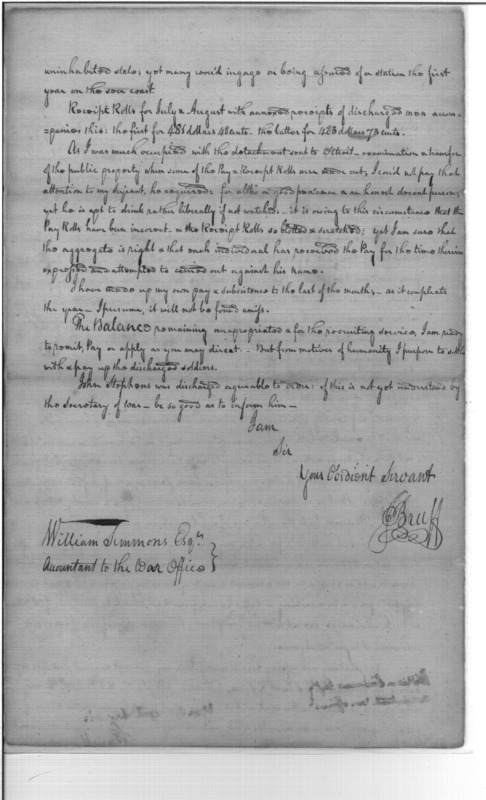 uninhabited state; yet many wou'd ingage on being assured of a station the first
year on the sea coast
Receipt Rolls for July & August with annexed receipts of discharged men accom-
=panies this: the first for 481 dollars 48 cents. the latter for 483 dollars 73 cents.
As I was much occupied with the detachment sent to Detroit - examination & transfer
of the public property when some of the Pay & Receipt Rolls were made out; I could not pay that
attention to my Serjeant, he required: for altho a good penman & an honest decent person;
yet he is apt to drink rather liberally if not watched - it is owing to this circumstance that the
Pay Rolls have been incorrect. & the Receipt Rolls so blotted & scratched; yet I am sure that
the aggregate is right & that each individual has received the Pay for the time therein
expressed and attempted to carried out against his name.
I have made up my own pay & subsistence to the last of the month - as it compleats
the year - I presume, it will not be found amiss.
The Balance remaining unapropriated & for the recruiting service, I am ready
to remit, Pay or apply as you may direct. - But from motives of humanity I purpose to settle
with & pay up the discharged soldiers.
John Stephens was discharged agreeable to order: if this is not yet understood by
the Secretary of war - be so good as to inform him -
I am
Sir
Your Obedient Servant
J Bruff
William Simmons Esqr.
Accountant to the War Office